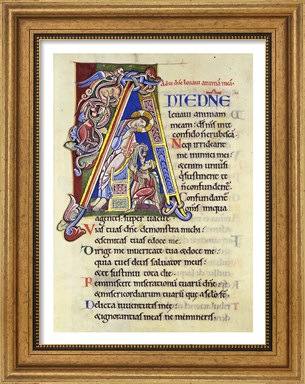 Ad te dñe levavi animā meā.
A DTEDÑE
levavi animam
meam: dš mš inte
confido nerubescā
Neq; irrideant
me inimici mei:
qui
sustinent te
n̄ confundent̄.
Confundant̄
omīs iniqua
agentes: super vacue.
Vias tuas dñe demonstra michi:
& semitas tuas edoce me.
Dirige me inveritate tua & doce me:
quia tu es deus salvator meus:
& te sustinui tota die.
Reminiscere miserationū tuarū dñe:
& misericordiarum tuarū que a sc̄lo s̄.
Delicta iuventutis mee:
& ignorantias meas ne memineris dñe.